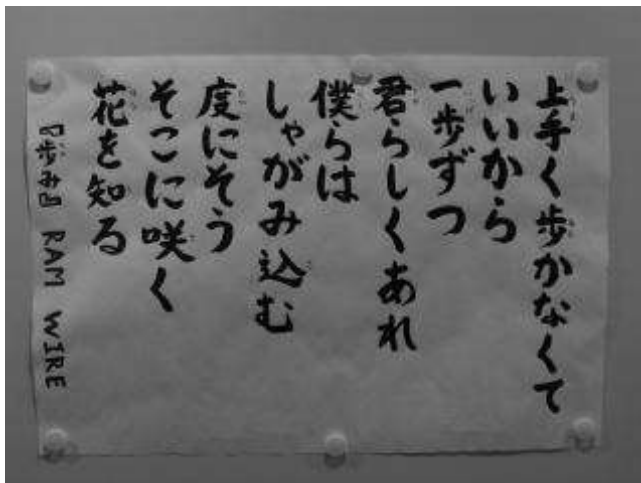 上手く歩かなくて
いいから
一歩ずつ
君らしくあれ
僕らは
しゃがみ込む
度にそう
そこに咲く
花を知る
『歩み』 RAM WIRE